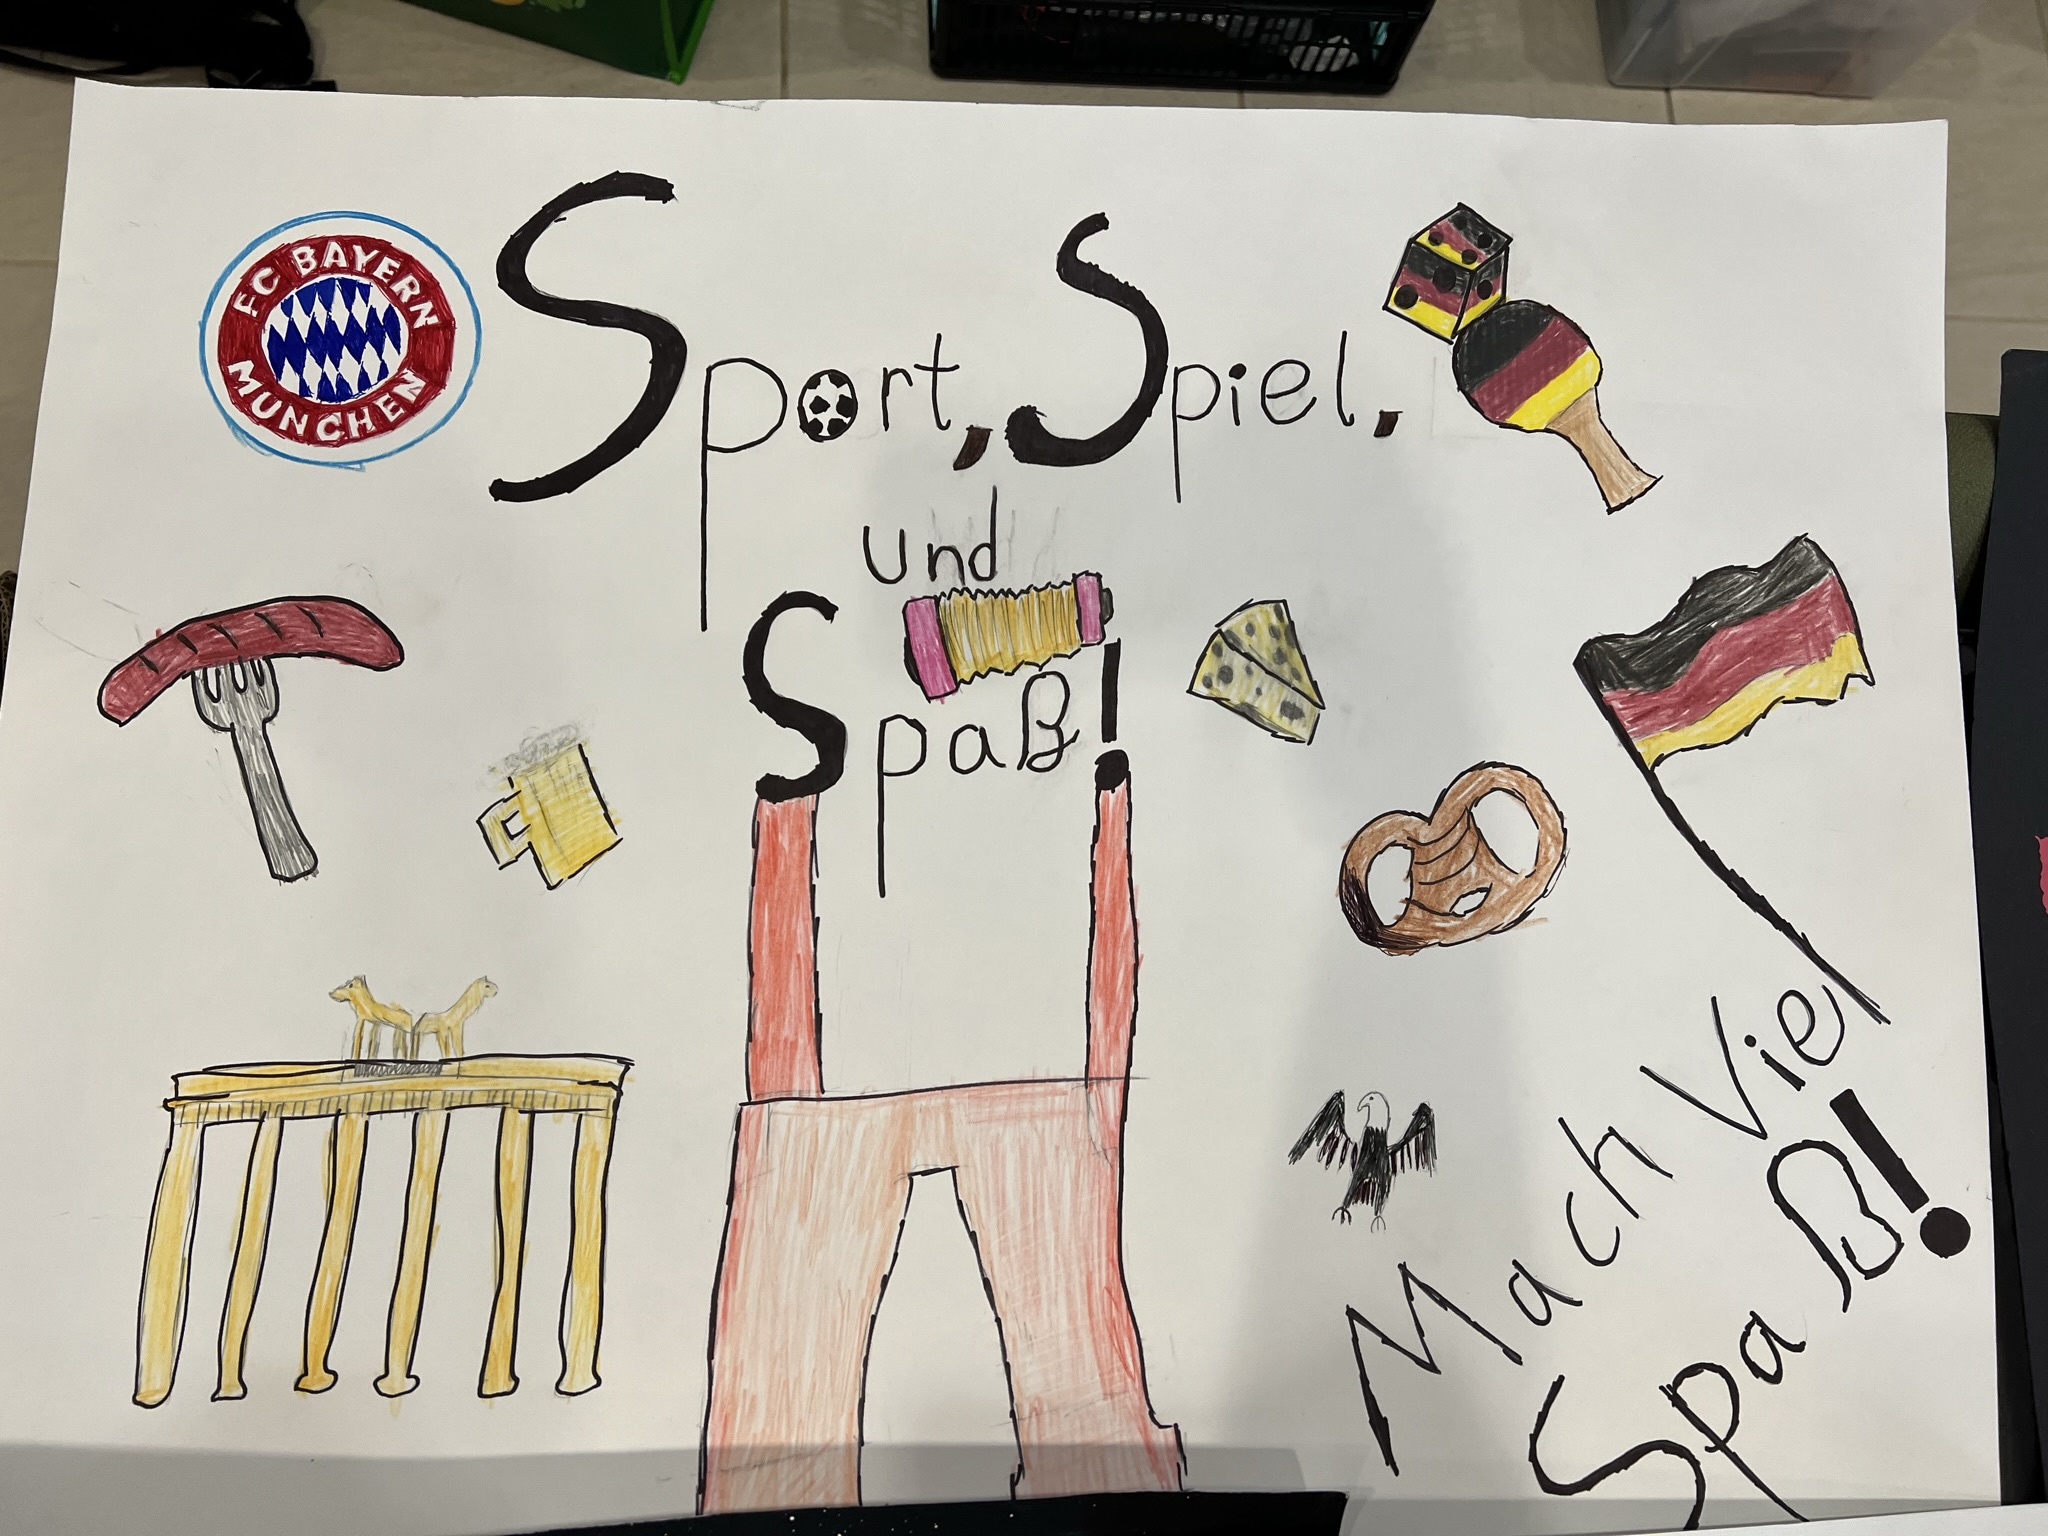 FC BAYERN
MUNCHEN
Sport, Spiel,
und
Spaß!
Mach Viel
Spaß!